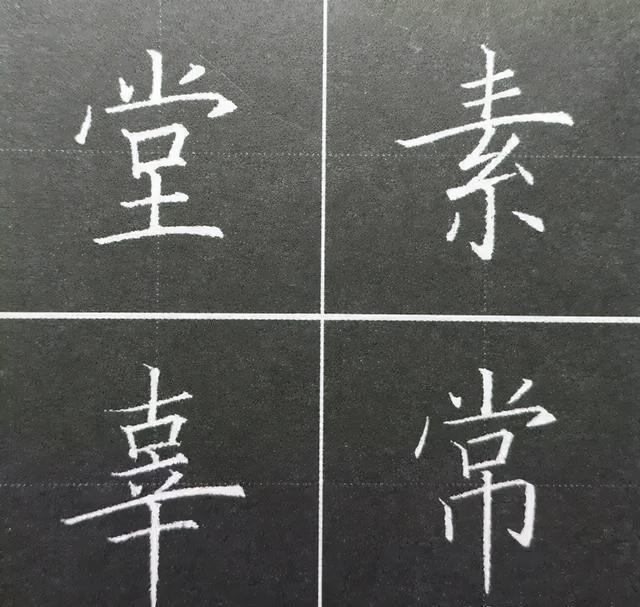 堂素
辜常